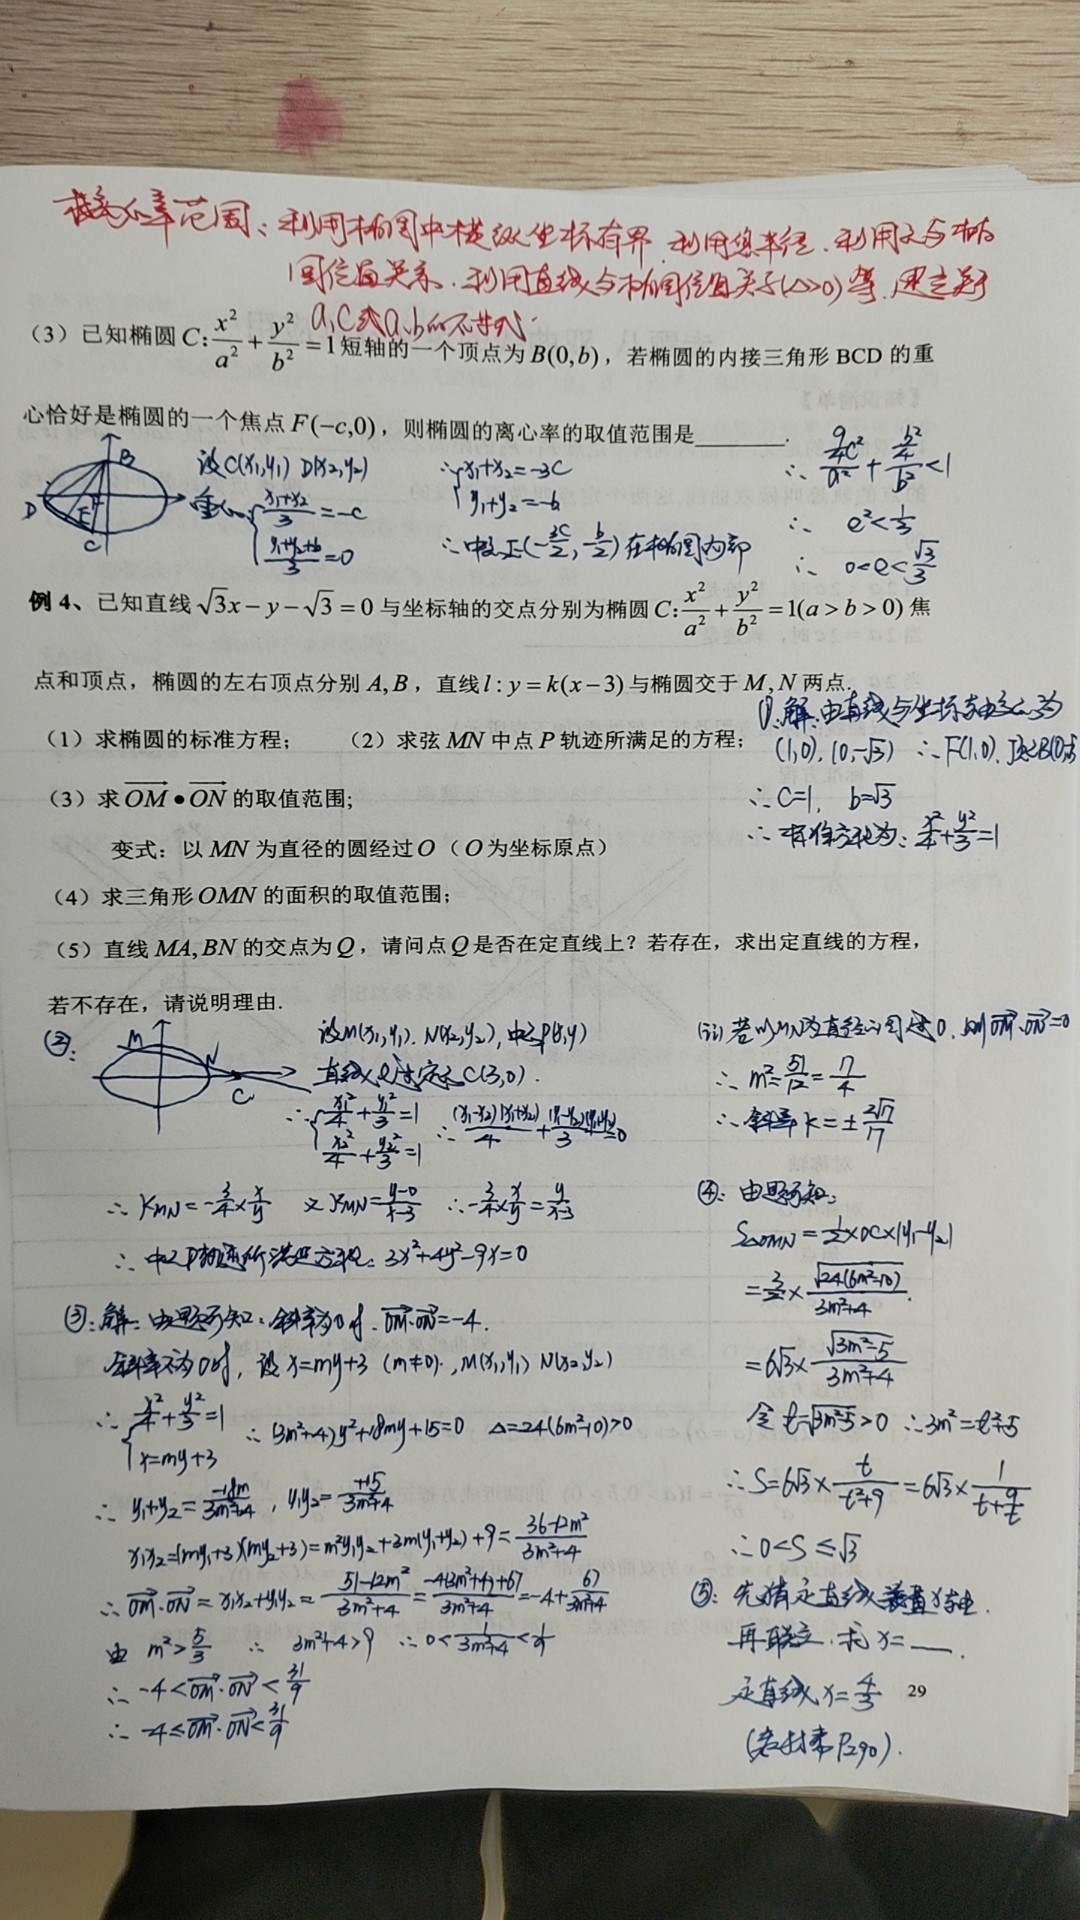 求离心率范围:利用椭圆中横纵坐标有界.利用焦半径.利用点与椭
圆位置关系.利用直线与椭圆位置关系(△>0)等.建立关于
a,c或a,b的不等式.
(3)已知椭圆C:x²/a²+y²/b²=1短轴的一个顶点为B(0,b),若椭圆的内接三角形BCD的重
心恰好是椭圆的一个焦点F(-c,0),则椭圆的离心率的取值范围是________.
B
D
F
E
C
设C(x₁,y₁) D(x₂,y₂)
重心 { (x₁+x₂)/3=-c
(y₁+y₂+b)/3=0
∴{ x₁+x₂=-3c
y₁+y₂=-b
∴中点E(-3c/2,-b/2)在椭圆内部
∴ (9/4 c²)/a²+(b²/4)/b²<1
∴ e²<1/3
∴ 0<e<√3/3
例4、已知直线√3x-y-√3=0与坐标轴的交点分别为椭圆C:x²/a²+y²/b²=1(a>b>0)焦
点和顶点,椭圆的左右顶点分别A,B,直线l:y=k(x-3)与椭圆交于M,N两点.
(1)求椭圆的标准方程; (2)求弦MN中点P轨迹所满足的方程;
(3)求OM→•ON→的取值范围;
变式:以MN为直径的圆经过O(O为坐标原点)
(4)求三角形OMN的面积的取值范围;
(5)直线MA,BN的交点为Q,请问点Q是否在定直线上?若存在,求出定直线的方程,
若不存在,请说明理由.
①.解:由直线与坐标轴交点为
(1,0),(0,-√3) ∴F(1,0).
∴C=1, b=√3
∴标准方程为:x²/4+y²/3=1
②:
M
N
C
设M(x₁,y₁).N(x₂,y₂),中点P(x,y)
直线l过定点C(3,0).
∴{ x₁²/4+y₁²/3=1
x₂²/4+y₂²/3=1
∴ (x₁-x₂)(x₁+x₂)/4+(y₁-y₂)(y₁+y₂)/3=0
∴ KMN=-3/4×x/y 又KMN=(y-0)/(x-3) ∴-3/4×x/y=y/(x-3)
∴ 中点P轨迹所满足方程:3x²+4y²-9x=0
③:解:由题可知:斜率为0时.OM→·ON→=-4.
斜率不为0时,设x=my+3 (m≠0).,M(x₁,y₁) N(x₂,y₂)
∴{ x²/4+y²/3=1
x=my+3
∴(3m²+4)y²+18my+15=0 △=24(6m²-10)>0
∴ y₁+y₂=-18m/(3m²+4), y₁y₂=+15/(3m²+4)
x₁x₂=(my₁+3)(my₂+3)=m²y₁y₂+3m(y₁+y₂)+9=(36-12m²)/(3m²+4)
∴ OM→·ON→=x₁x₂+y₁y₂=(51-12m²)/(3m²+4)=(-4(3m²+4)+67)/(3m²+4)=-4+67/(3m²+4)
由 m²>5/3 ∴ 3m²+4>9 ∴0<1/(3m²+4)<1/9
∴ -4<OM→·ON→<31/9
∴ -4≤OM→·ON→<31/9
若以MN为直径的圆过O.则OM→·ON→=0
∴ m²=51/12=17/4
∴斜率k=±2√17/17
④:由题可知:
S△OMN=1/2×OC×|y₁-y₂|
=3/2×√(24(6m²-10))/(3m²+4).
=6√3×√(3m²-5)/(3m²+4)
令t=√(3m²-5)>0 ∴3m²=t²+5
∴S=6√3×t/(t²+9)=6√3×1/(t+9/t)
∴0<S≤√3
⑤:先猜定直线垂直x轴.
再联立.求x=___.
定直线x=4/3
29